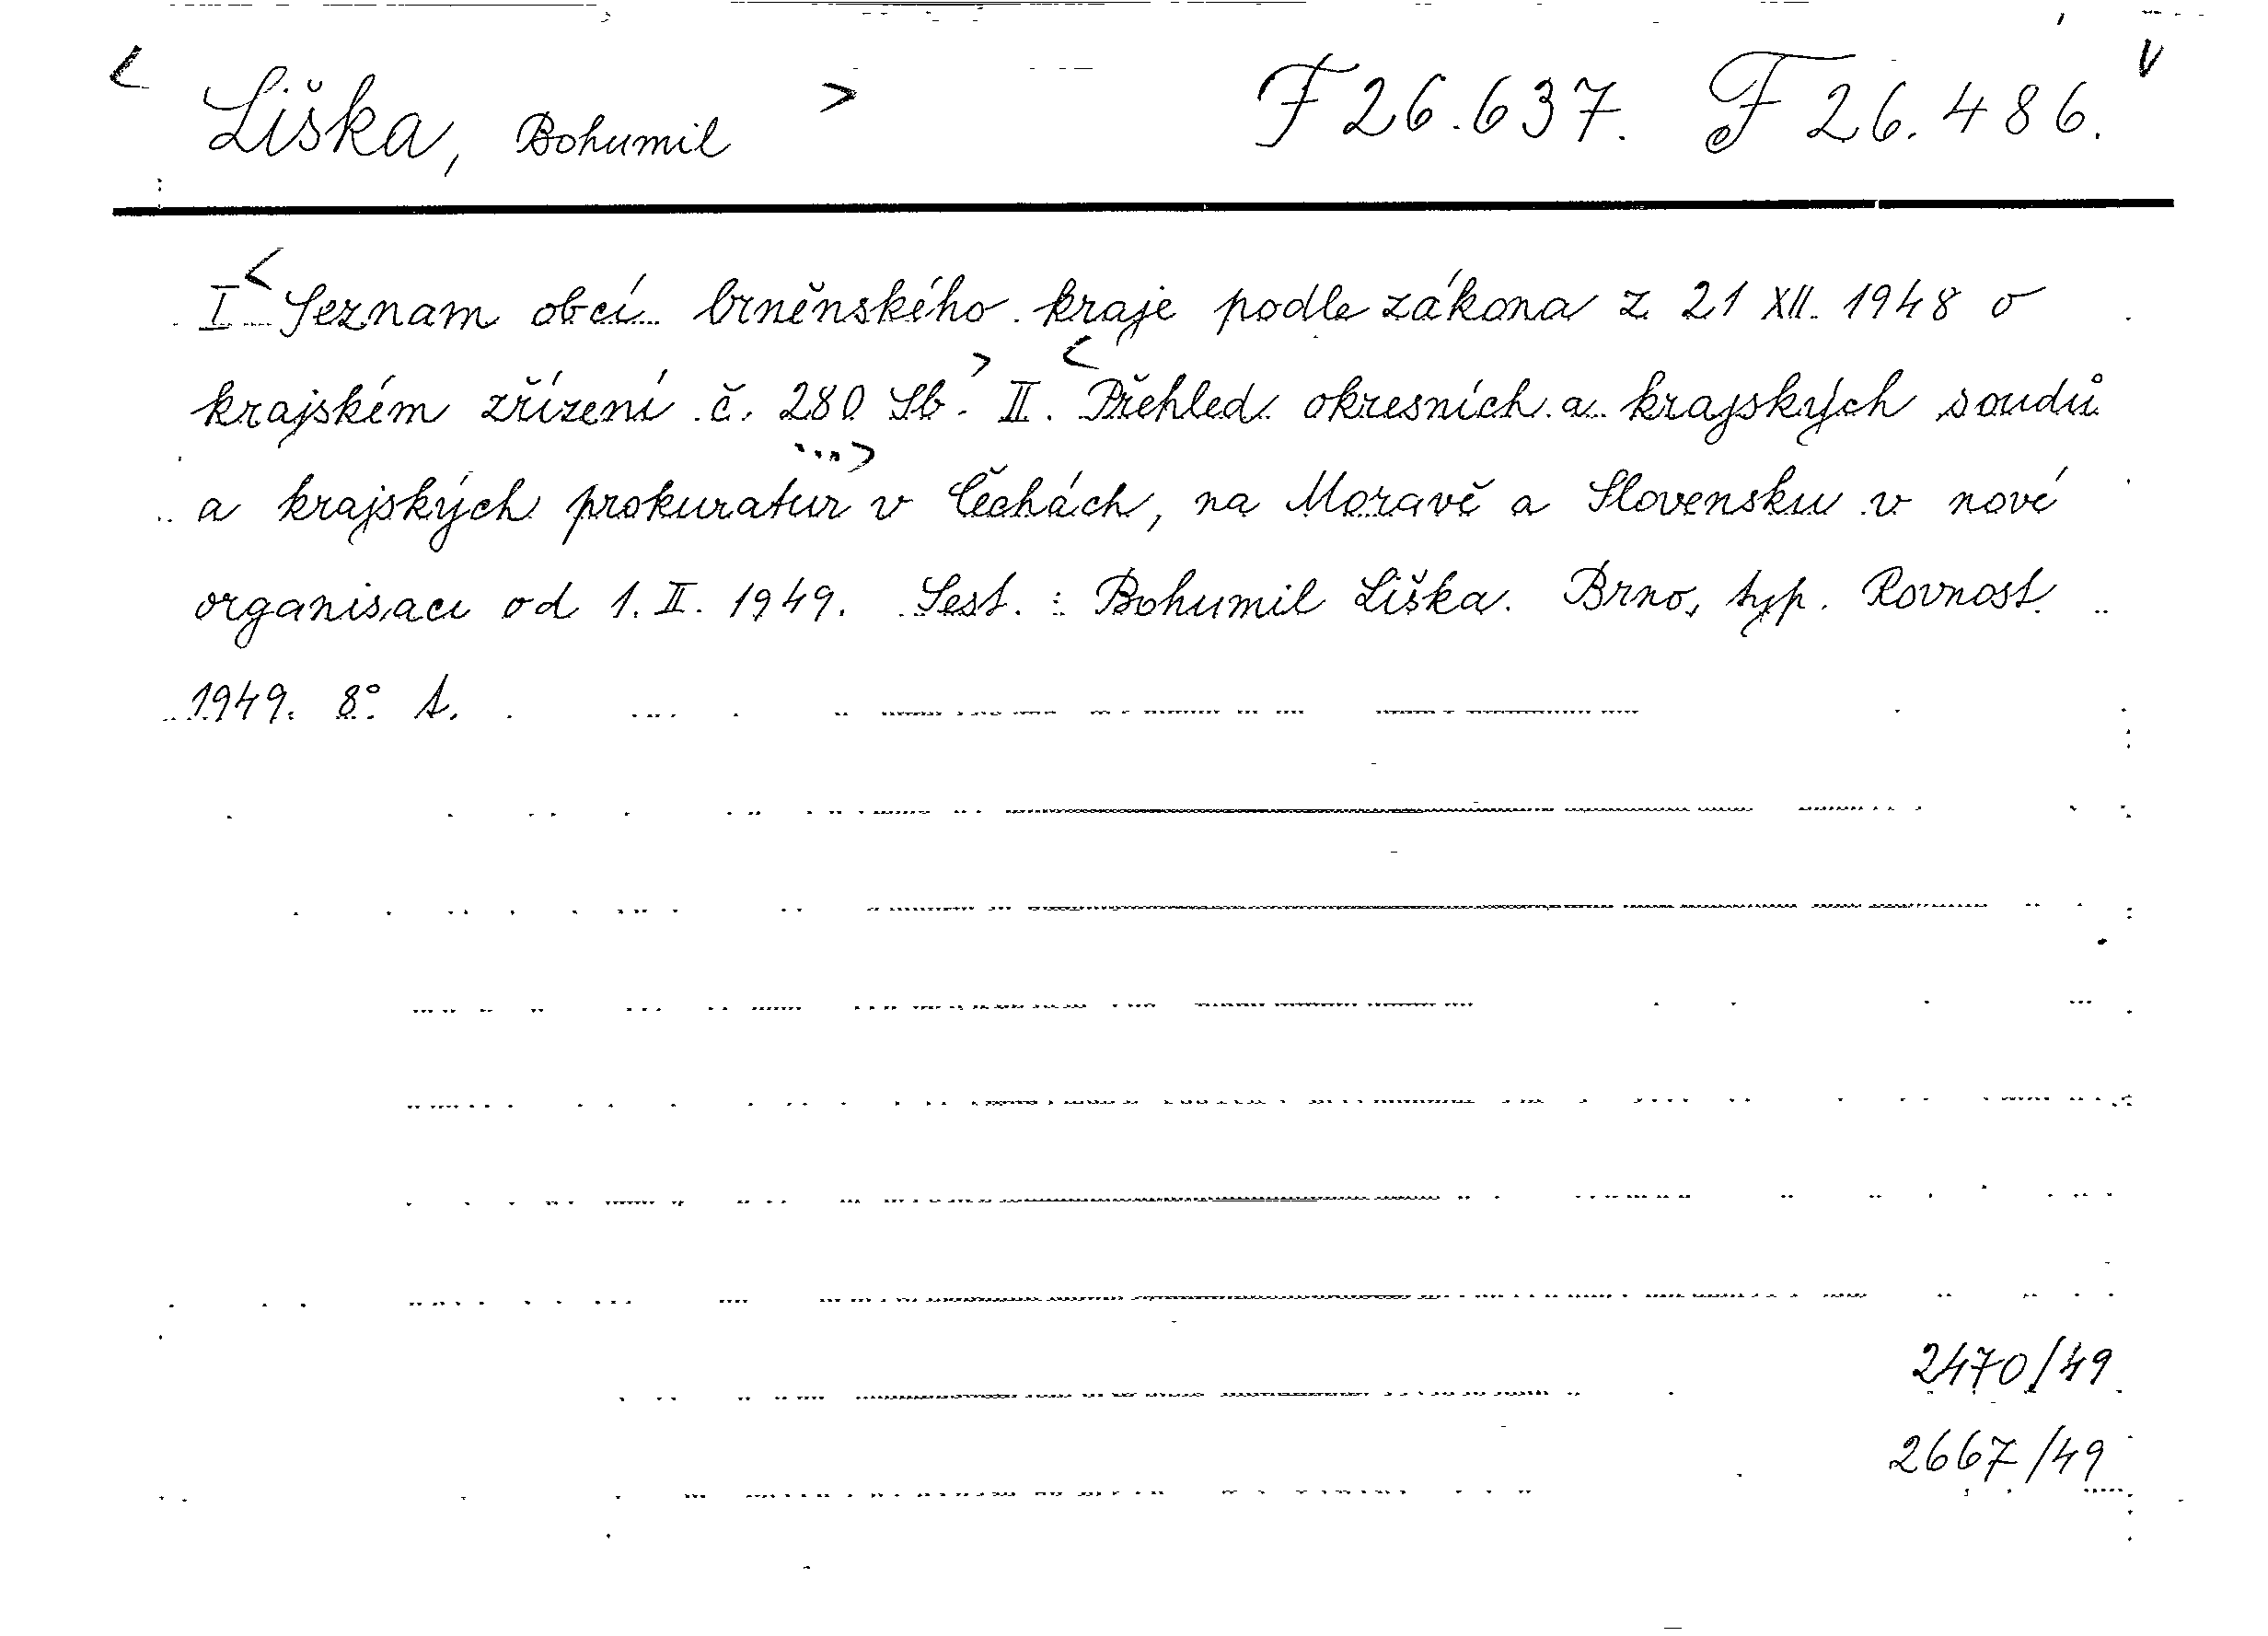 < Liška, Bohumil > F 26.637. F 26.486. v
I < Seznam obcí brněnského kraje podle zákona z 21 XII. 1948 o
krajském zřízení č. 280 Sb. > II. < Přehled okresních a krajských soudů
a krajských prokuratur ...> v Čechách, na Moravě a Slovensku v nové
organisaci od 1. II. 1949. Sest. : Bohumil Liška. Brno, typ. Rovnost
1949. 8° s.
2470/49
2667/49